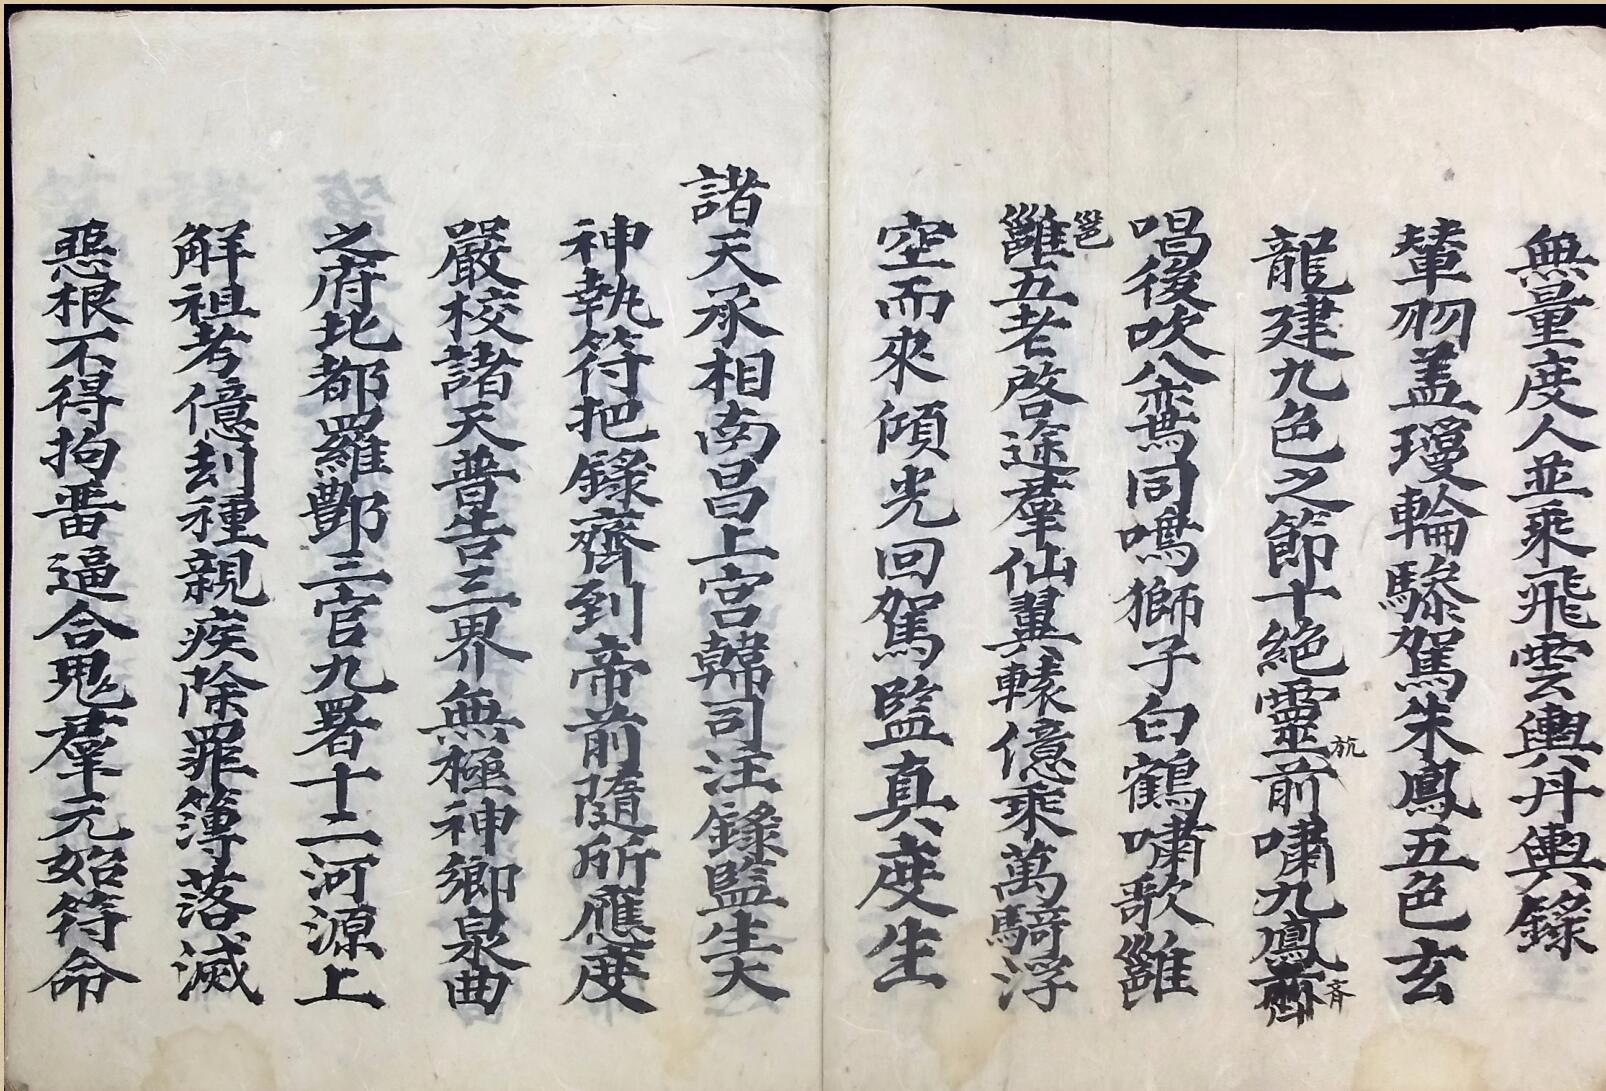 無量度人並乘飛雲輿丹輿錄
輦羽盖瓊輪驂駕朱鳳五色玄
龍建九色之節十絶靈前嘯九鳳齊
旂
斉
唱後吹八鸞同鳴獅子白鶴嘯歌雝
雝五老啓途羣仙翼轅億乘萬騎浮
邕
空而來傾光回駕監真度生
諸天丞相南昌上宮韓司注錄監生大
神執符把籙齊到帝前隨所應度
嚴校諸天普告三界無極神鄉泉曲
之府北都羅酆三官九署十二河源上
解祖考億刼種親疾除罪簿落滅
惡根不得拘畱逼合鬼羣元始符命